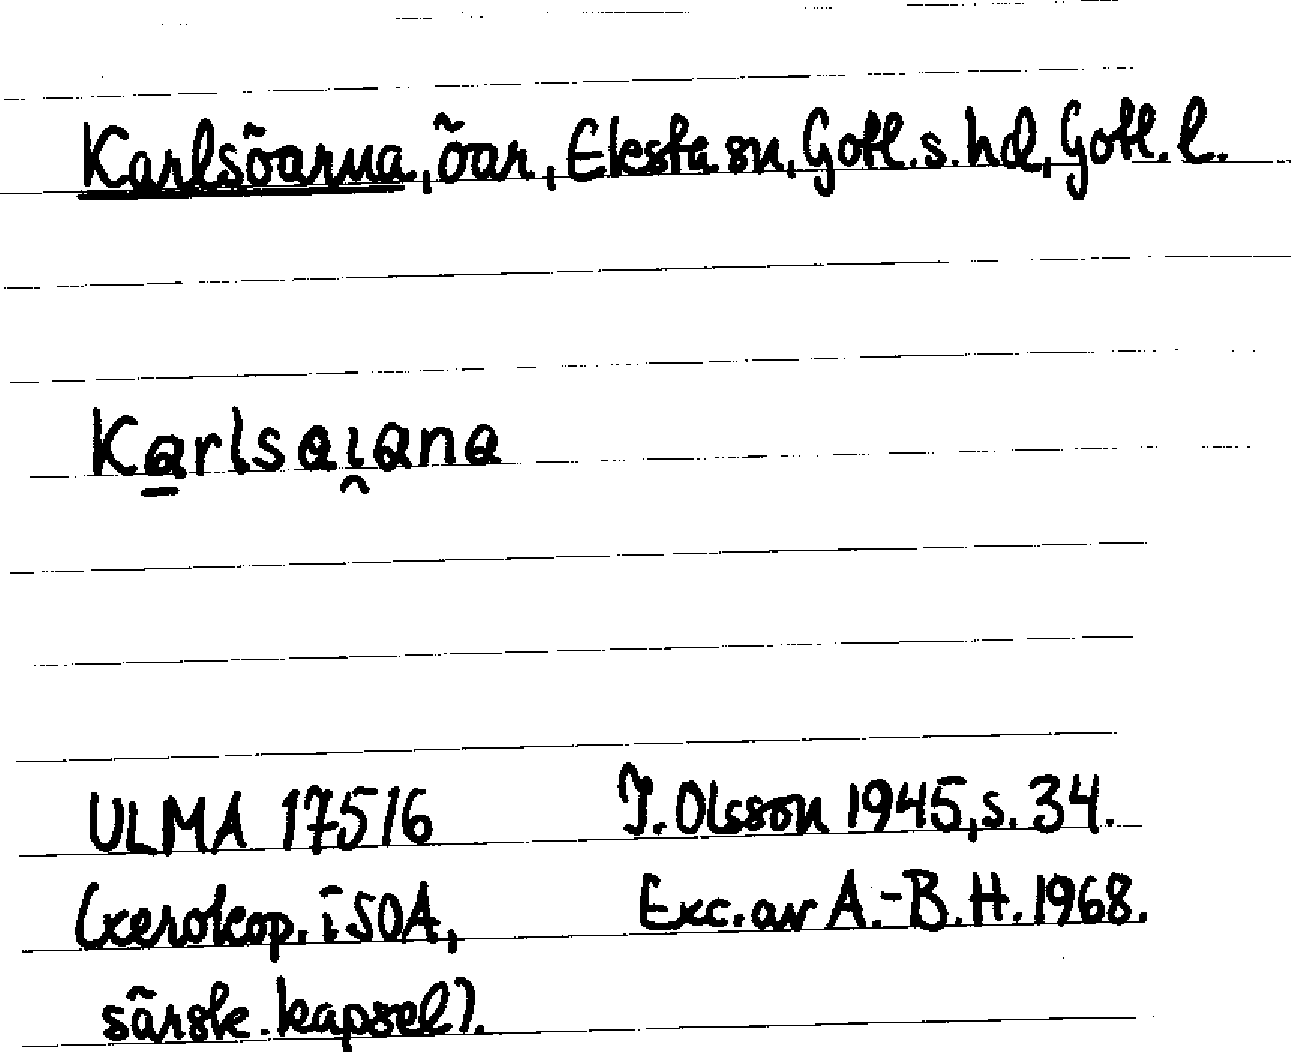 Karlsöarna, öar, Eksta sn, Gotl. s. hd, Gotl. l.
Ka̲rlsai̯ana
ULMA 17516
J. Olsson 1945, s. 34.
(xerokop. i SOA,
Exc. av A.-B. H. 1968.
särsk. kapsel).